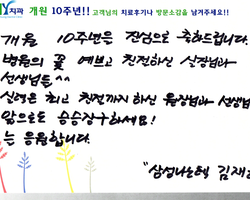 Y치과 개원 10주년!! 고객님의 치료후기나 방문소감을 남겨주세요!!
개원 10주년은 진심으로 축하드립니다.
병원의 꽃 예쁘고 친절하신 실장님과
선생님들^^
실력은 최고 친절까지 하신 원장님과 선생님
앞으로도 승승장구하세요!
는 응원합니다.
"삼성나노텍 김재